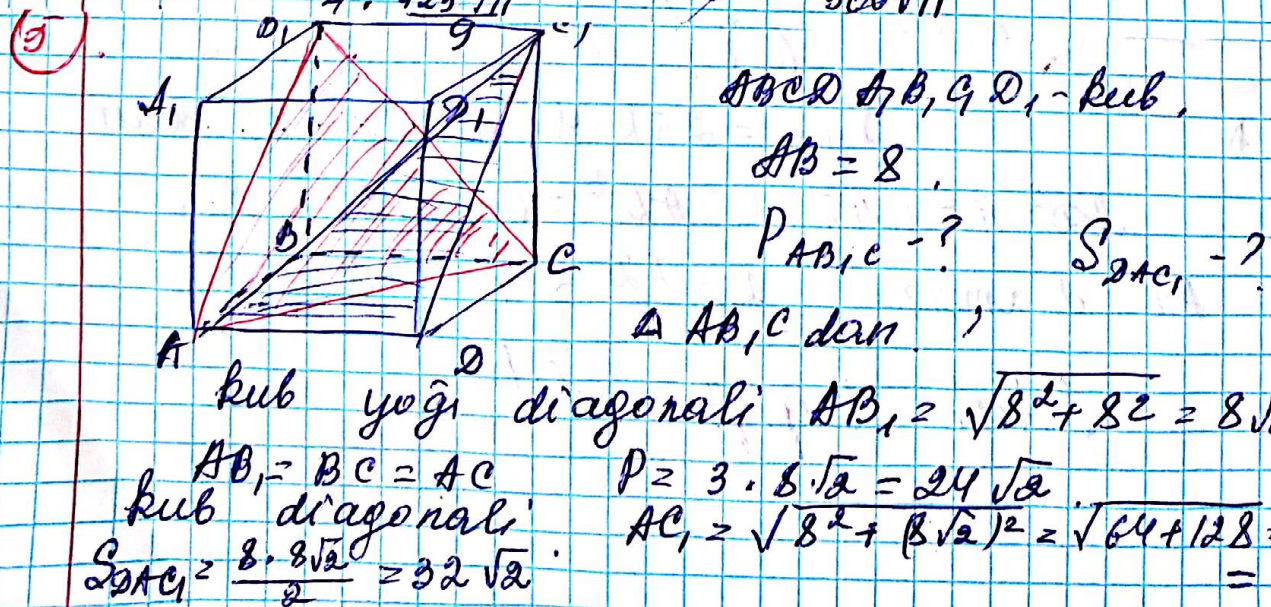 5.
B₁ C₁
A₁ D₁
ABCD A₁B₁C₁D₁ - kub,
AB = 8.
P_{AB₁C} - ? S_{DAC₁} - ?
B C
Δ AB₁C dan,
A D
kub yog'i diagonali AB₁ = √(8² + 82) = 8√
AB₁ = BC = AC P = 3 · 8·√2 = 24√2.
kub diagonali AC₁ = √(8² + (8√2)²) = √(64+128) =
S_{DAC₁} = (8 · 8√2)/2 = 32√2. =